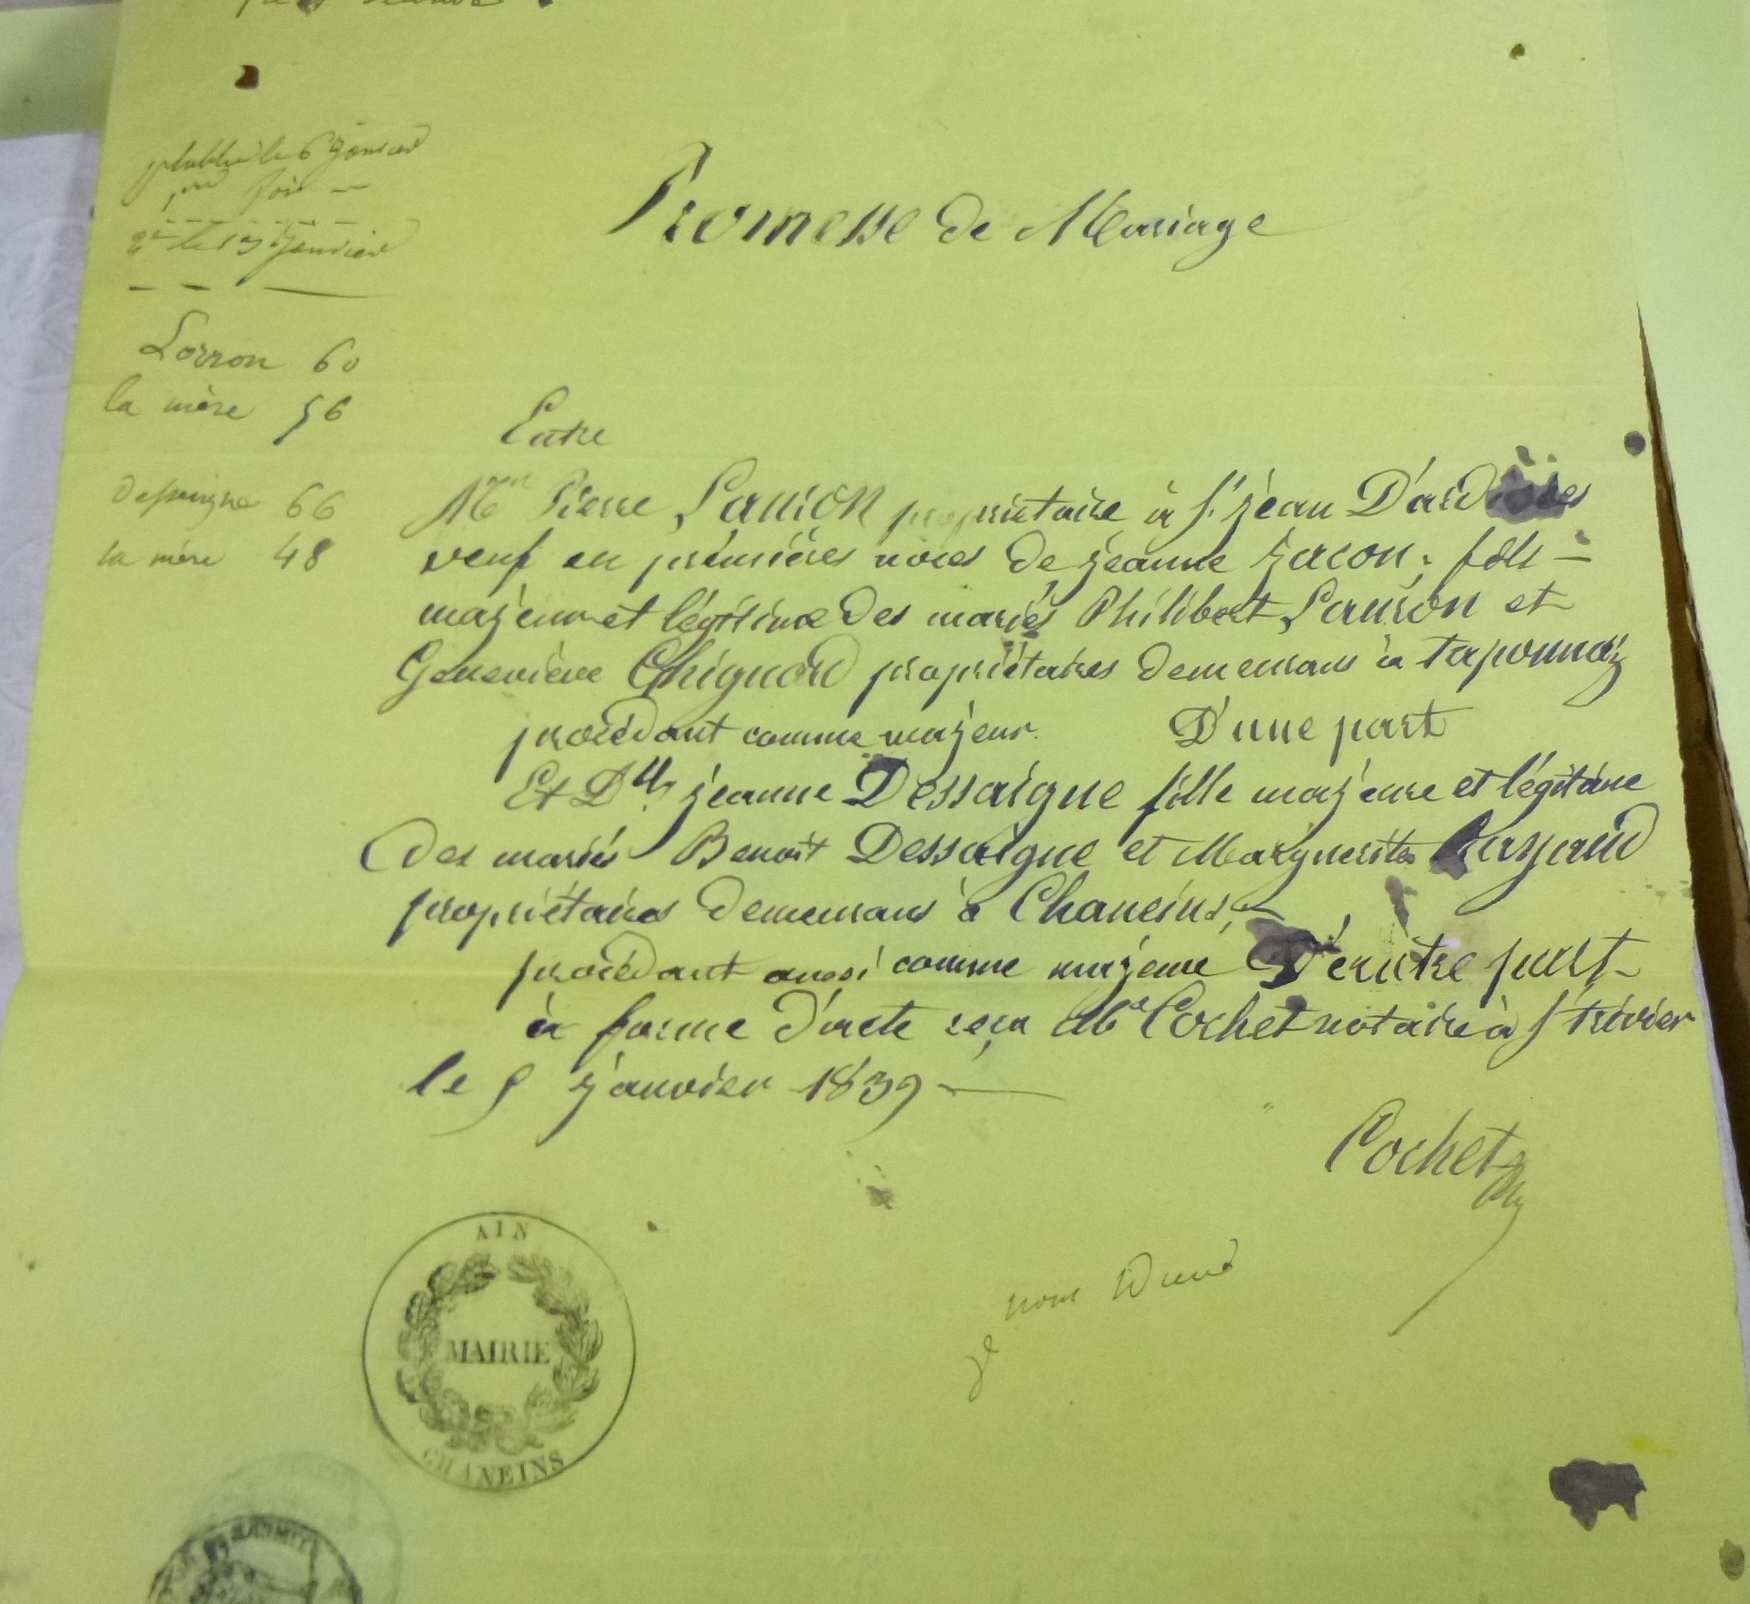 publié le 6 Janvier
1ere fois
2e le 13 Janvier
Lorron 60
la mère 56
dessaigne 66
la mère 48
Promesse de Mariage
Entre
Mr Pierre Lauron propriétaire à St jean D'ard
veuf en premières noces de jeanne jacon, fils
majeur et légitime des mariés Philibert Lauron et
Geneviève Chignard propriétaires demeurans à taponnaz
procédant comme majeur. D'une part
Et Dlle jeanne Dessaigne fille majeure et légitime
des mariés Benoit Dessaigne et Marguerite
propriétaires demeurans à Chaneins,
procédant aussi comme majeure D'autre part
à forme d'acte reçu Me Cochet notaire à St trivier
le 5 janvier 1839
Cochet
AIN
MAIRIE
CHANEINS